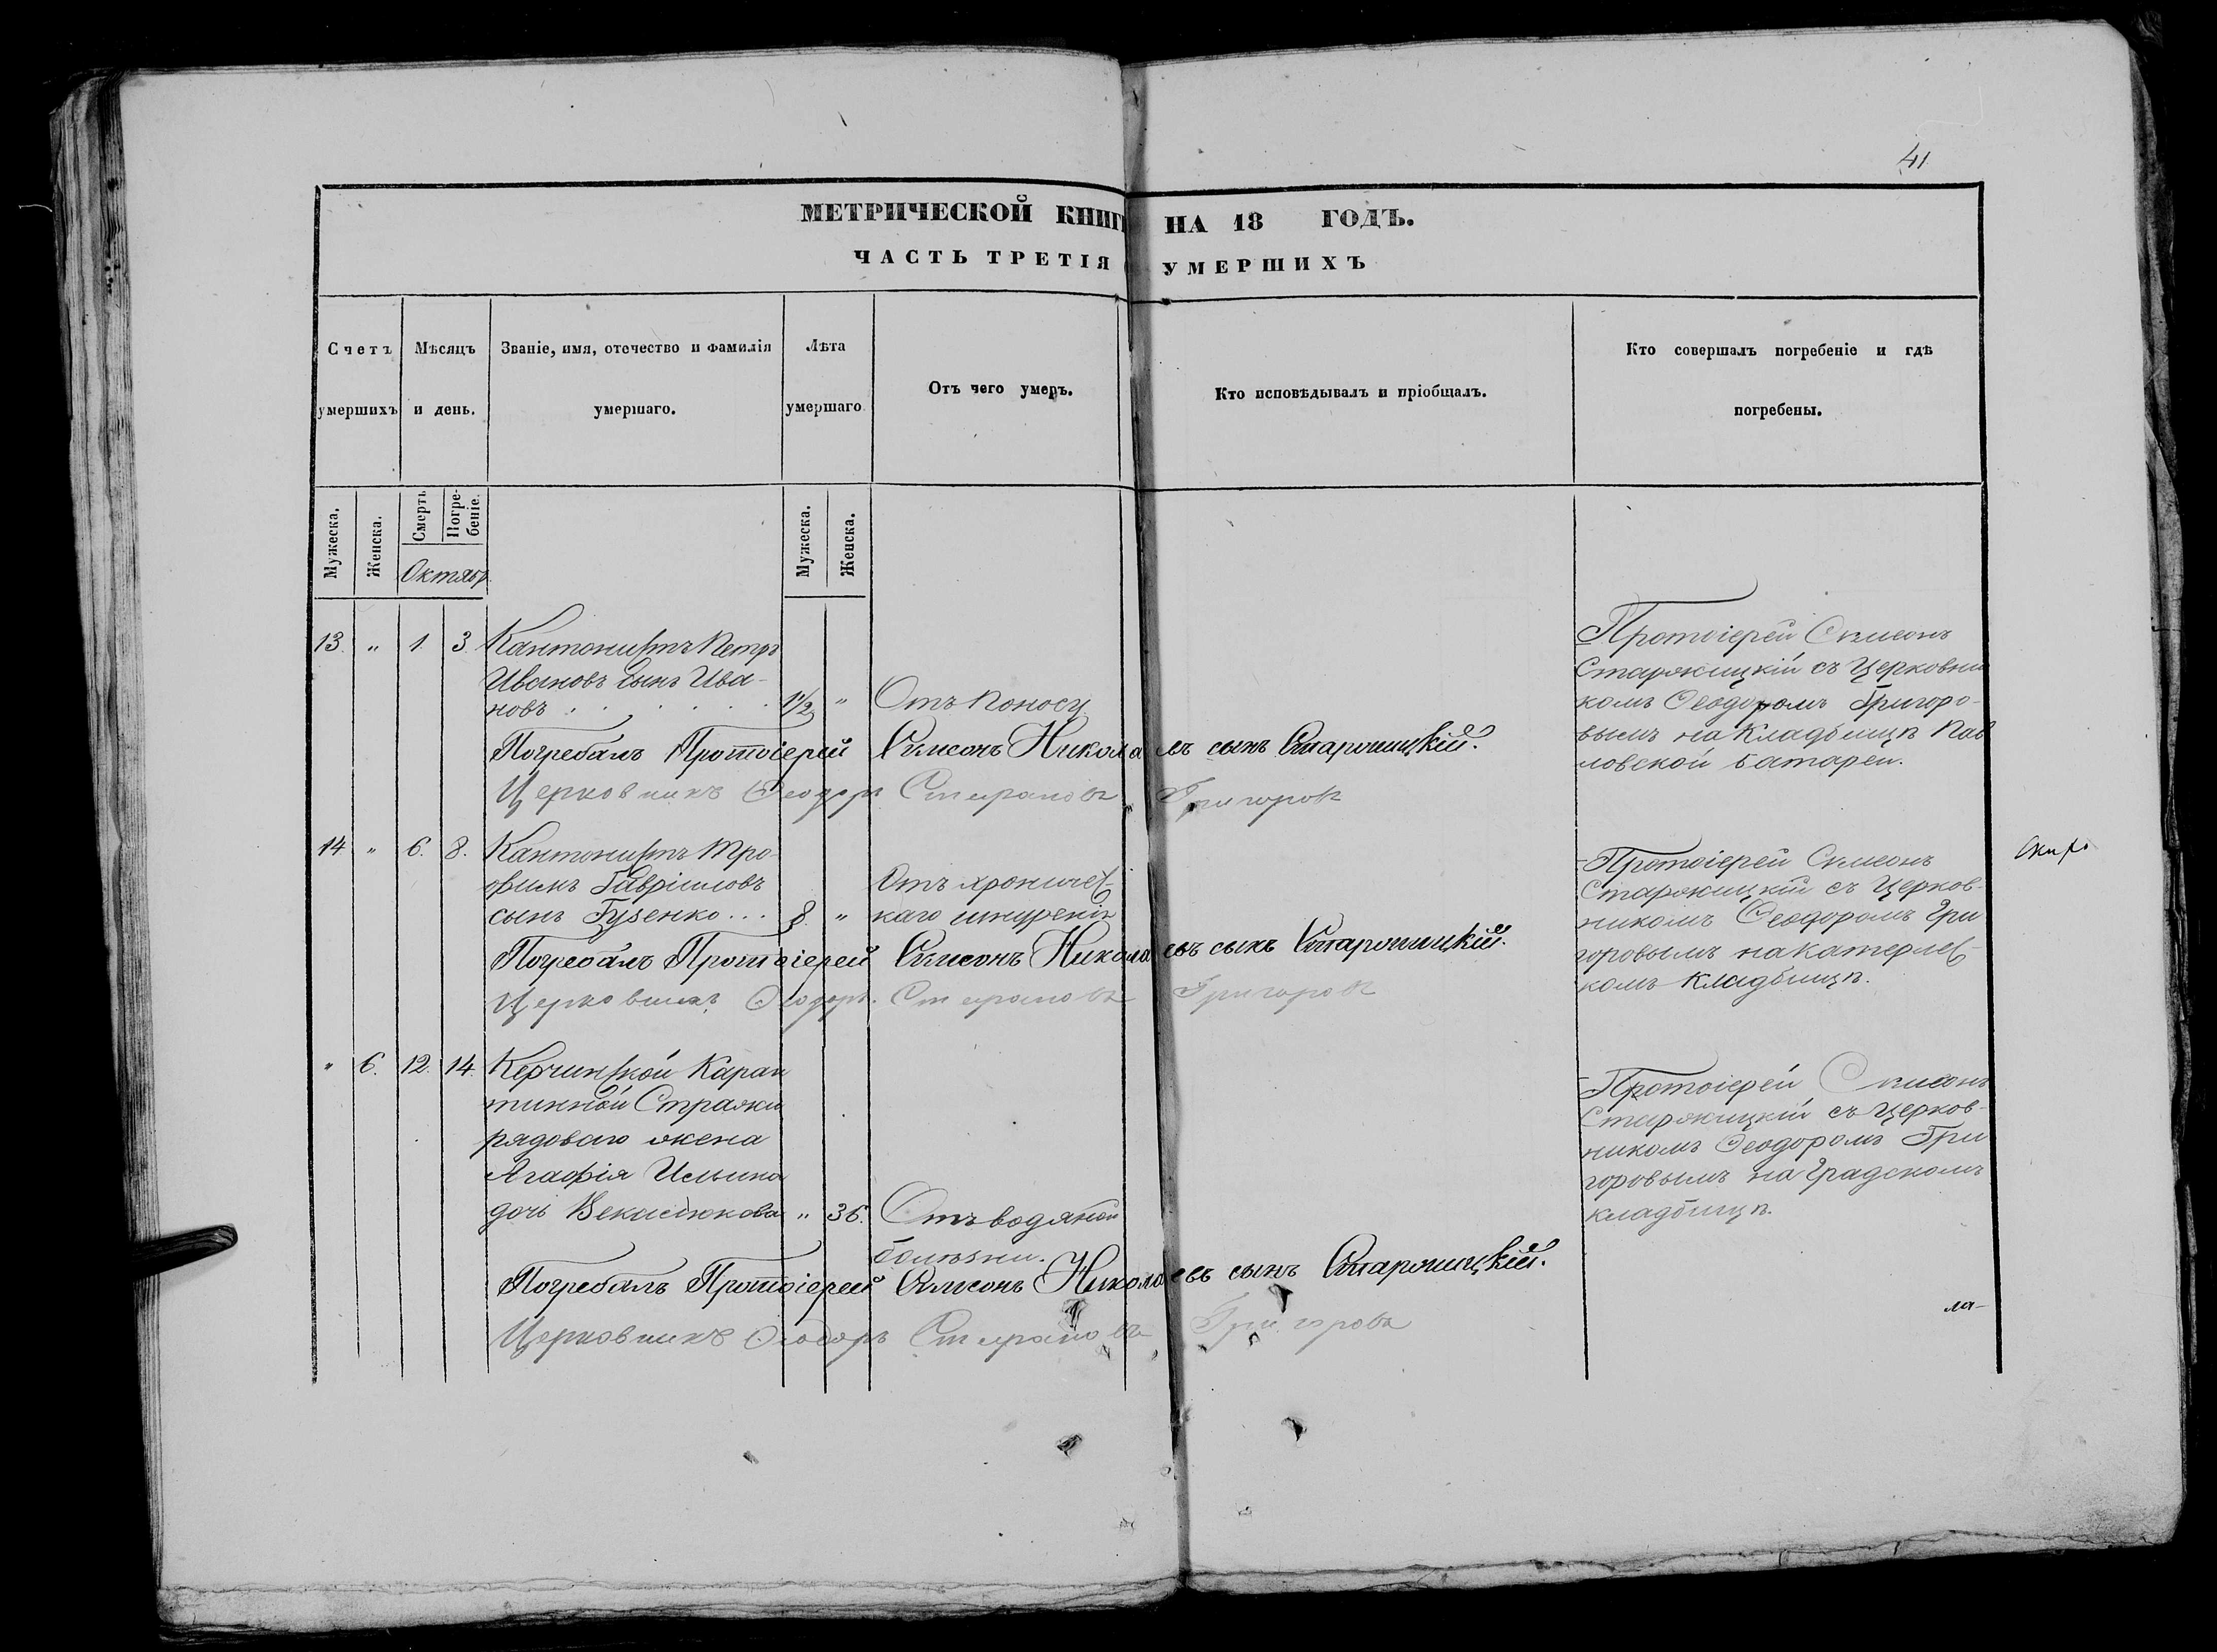 41
МЕТРИЧЕСКОЙ КНИГИ НА 18 ГОДЪ.
ЧАСТЬ ТРЕТІЯ УМЕРШИХЪ
Счетъ умершихъ
Мѣсяцъ и день.
Званіе, имя, отечество и фамилія умершаго.
Лѣта умершаго
Отъ чего умеръ.
Кто исповѣдывалъ и пріобщалъ.
Кто совершалъ погребеніе и гдѣ погребены.
Мужеска.
Женска.
Смерть
Погребеніе.
Мужеска.
Женска.
Октябр.
13. " 1. 3
Кантонистъ Петръ
Ивановъ сынъ Ива-
новъ . . . . . 1½ "
Отъ поносу
Протоіерей Симеонъ
Старжицкій съ Церковни
комъ Ѳеодоромъ Григоро-
вымъ на Кладбищѣ Пав
ловской батареи.
Погребалъ Протоіерей Симеонъ Николаевъ сынъ Старжицкій.
Церковникъ Ѳеодоръ Григоровъ
14 " 6. 8.
Кантонистъ Тро-
фимъ Гавріиловъ
сынъ Гузенко... 8. "
Отъ хроничес-
каго
Протоіерей Симеонъ
Старжицкій съ Церков-
никомъ Ѳеодоромъ Гри
горовымъ на
комъ кладбищѣ.
Погребалъ Протоіерей Симеонъ Николаевъ сынъ Старжицкій.
Церковникъ Ѳеодоръ Григоровъ
" 6. 12. 14.
Керчинской Каран
тинной Стражи
рядоваго жена
Агафія Ильина
дочь " 36.
Отъ водяной
болѣзни.
Протоіерей Симеонъ
Старжицкій съ Церков-
никомъ Ѳеодоромъ Гри
горовымъ на Градскомъ
кладбищѣ.
Погребалъ Протоіерей Симеонъ Николаевъ сынъ Старжицкій.
Церковникъ Ѳеодоръ Григоровъ